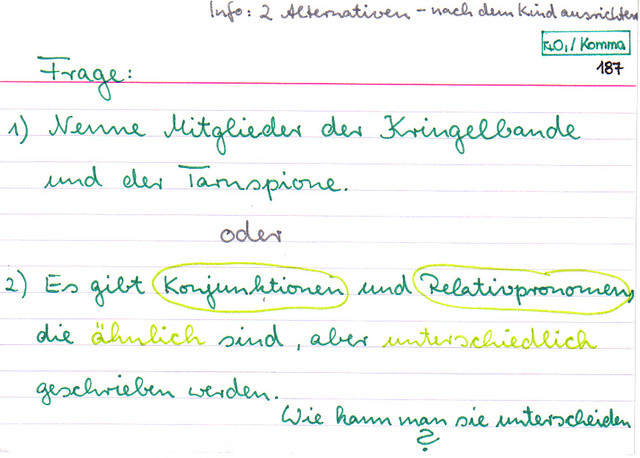 Info: 2 Alternativen - nach dem Kind ausrichten
/ Komma
187
Frage:
1) Nenne Mitglieder der Kringelbande
und der Tarnspione.
oder
2) Es gibt Konjunktionen und Relativpronomen,
die ähnlich sind, aber unterschiedlich
geschrieben werden.
Wie kann man sie unterscheiden
?